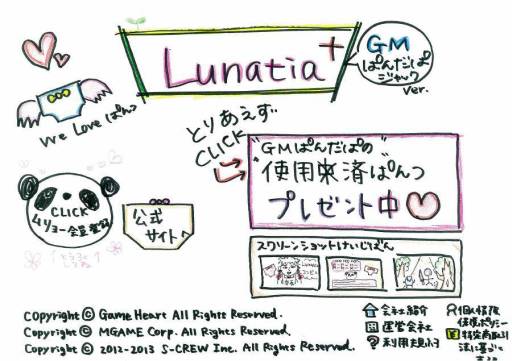 Lunatia+
GM
ぱんだぱ
ジャック
ver.
We Love ぱんつ
とりあえず
CLICK
"GMぱんだぱの"
使用済ぱんつ
プレゼント中♡
CLICK
ムリョー会員登録
公式
サイトへ
スクリーンショットけいじばん
Copyright © Game Heart All Rights Reserved.
Copyright © MGAME Corp. All Rights Reserved.
Copyright © 2012-2013 S-CREW Inc. All Rights Reserved.
会社紹介
運営会社
利用規約
個人情報
保護ポリシー
特定商取引
法に基づく